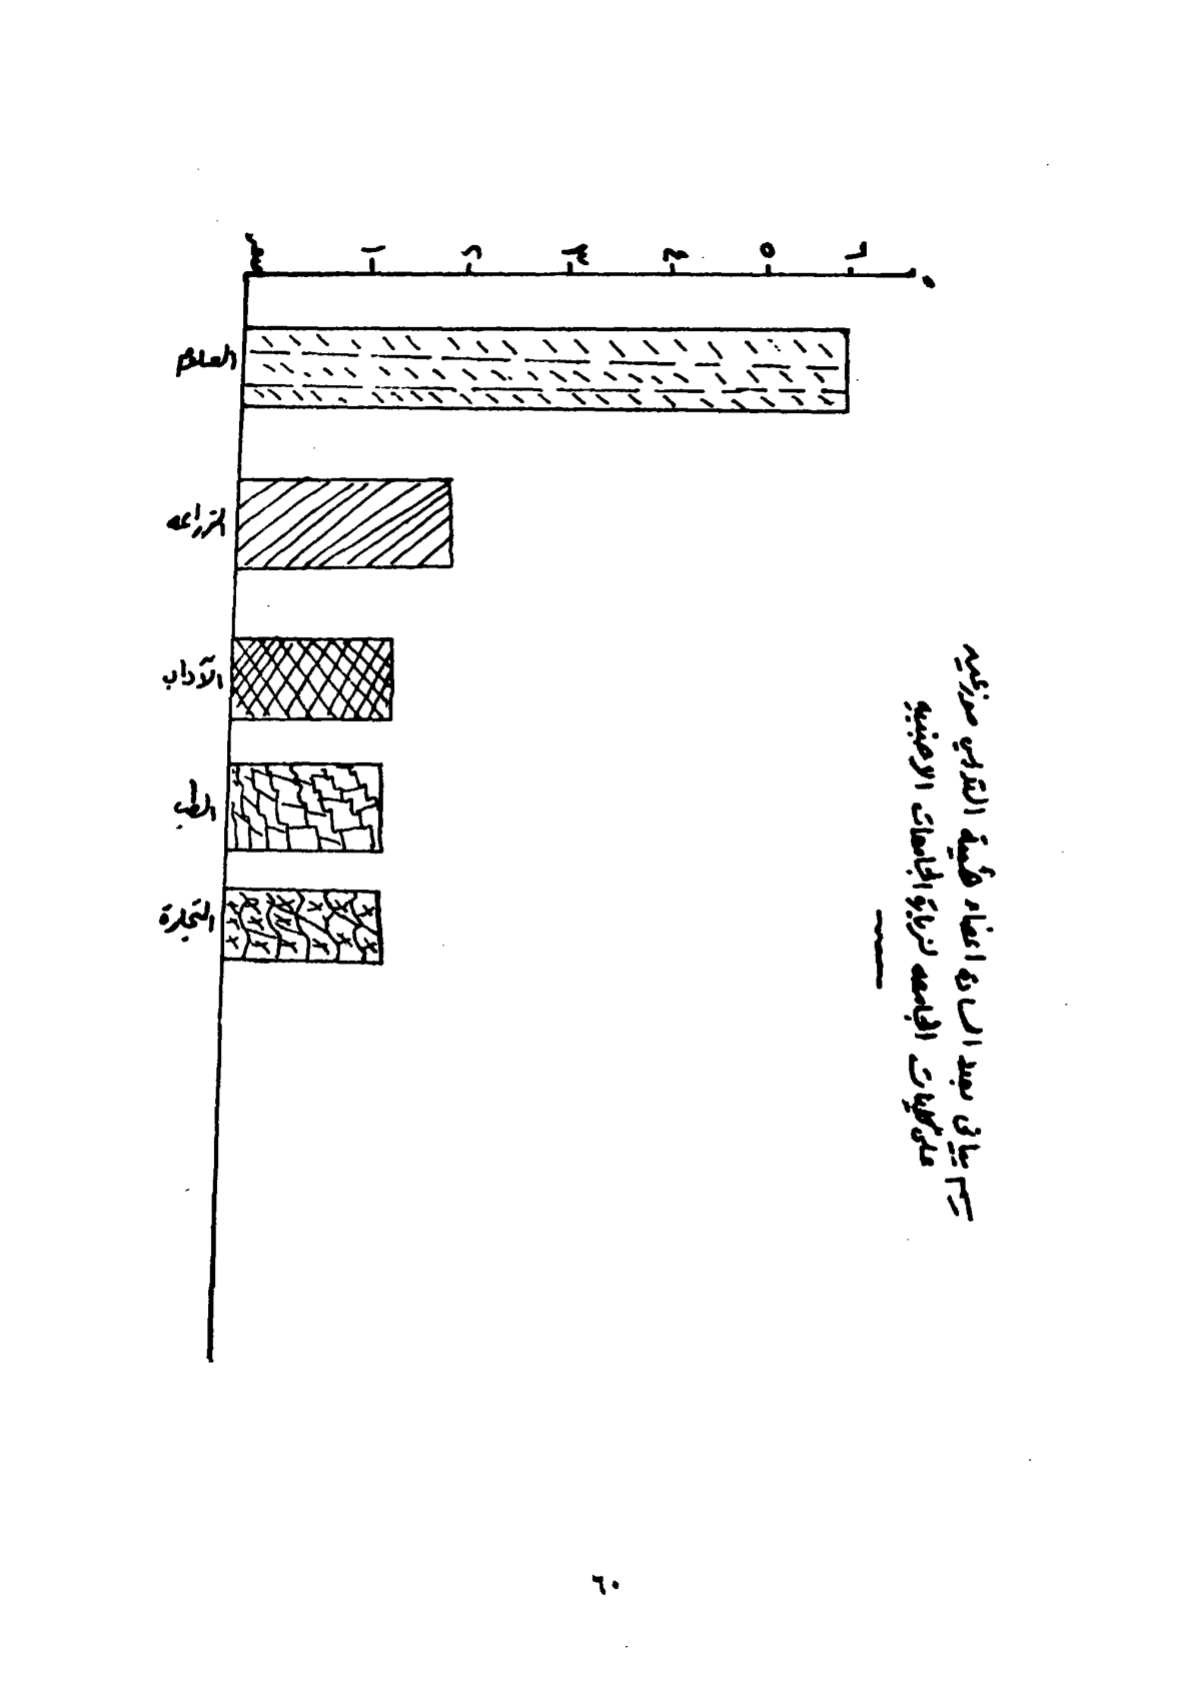 رسم بياني يبين السادة اعضاء هيئة التدريس موزعين
على كليات الجامعه لزيارة الجامعات الاجنبيه
صفر
١
٢
٣
٤
٥
٦
العلوم
الزراعه
الآداب
الطب
التجارة
٦٠